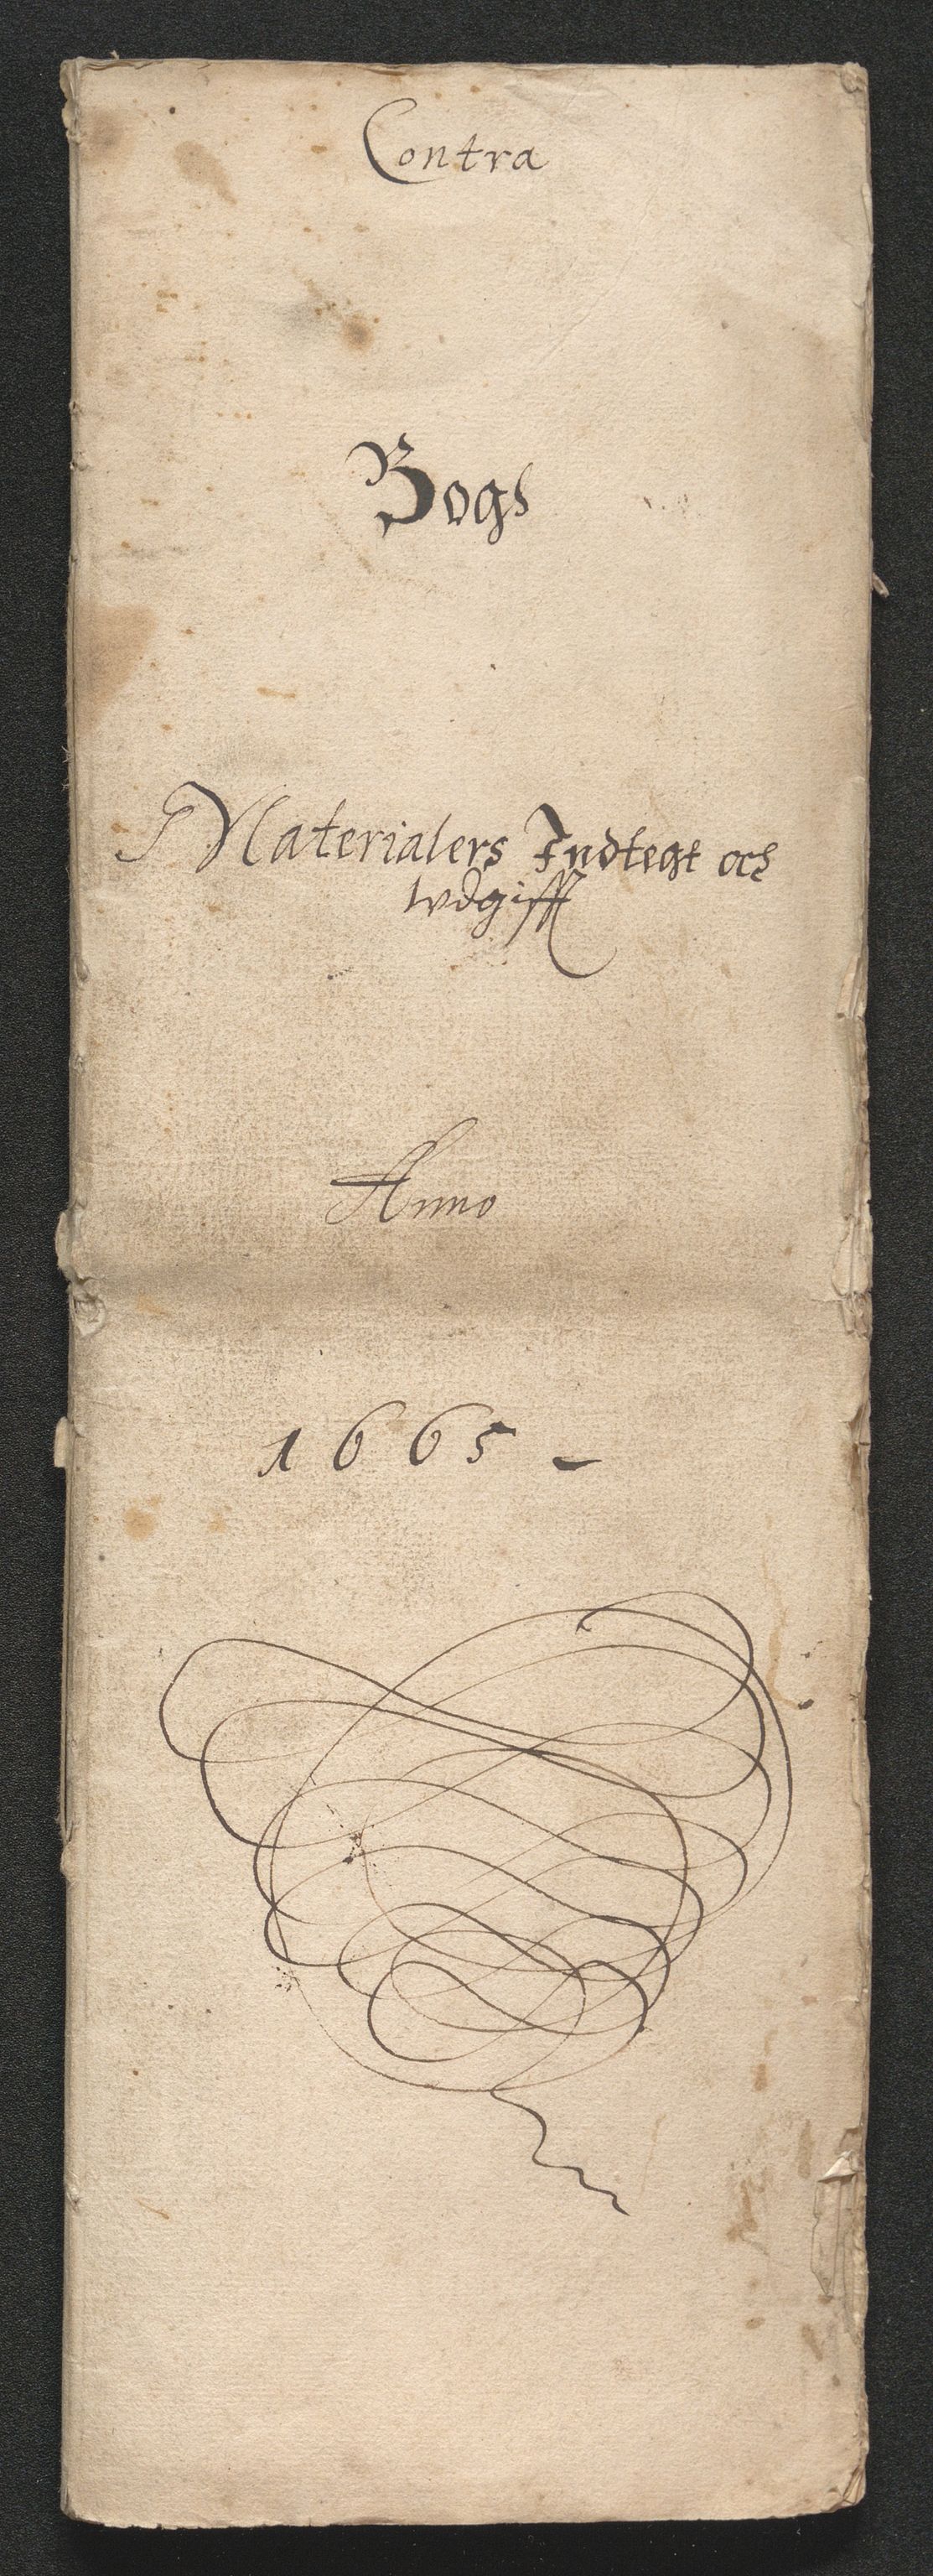 Contra
Bogs
Materialers Indtegt och
wdgifft
Anno
1665 -